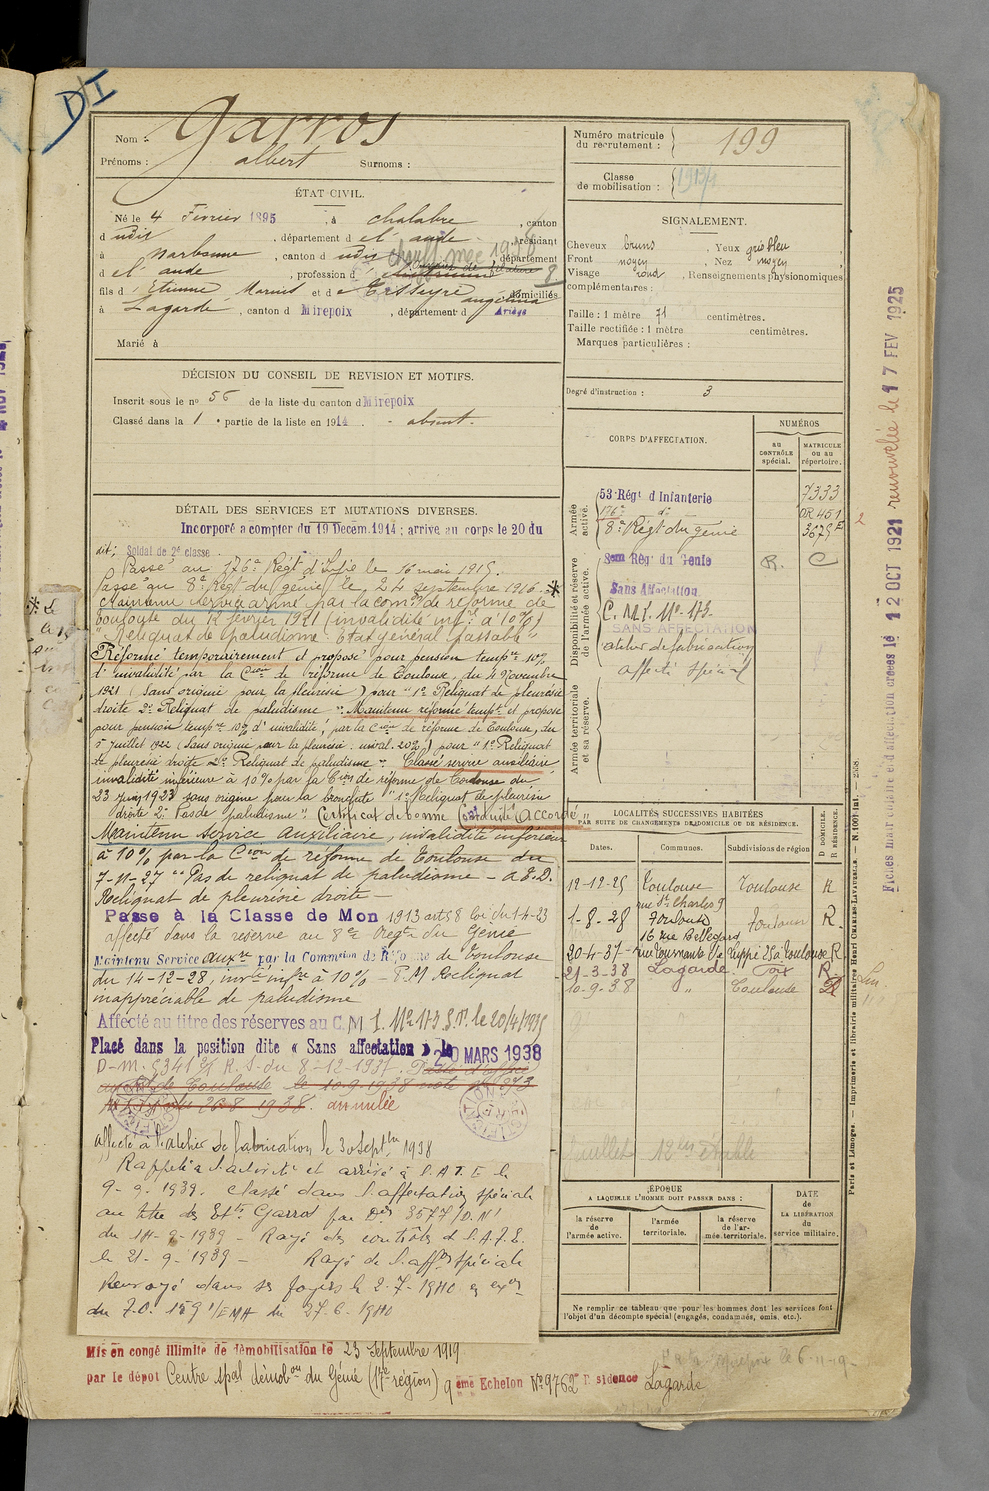 DI
Nom : Garros
Prénoms : albert Surnoms :
ÉTAT CIVIL.
Né le 4 Février 1895, à chalabre, canton
d udit, département d el' aude, résidant
à Narbonne, canton d udit, département
d el' aude, profession d
fils d' Etienne, Marius et d e Teisseyre angélina domiciliés
à Lagarde, canton d Mirepoix, département d Ariège
Marié à
DÉCISION DU CONSEIL DE REVISION ET MOTIFS.
Inscrit sous le n° 56 de la liste du canton d Mirepoix
Classé dans la 1 e partie de la liste en 1914. - absent.
DÉTAIL DES SERVICES ET MUTATIONS DIVERSES.
Incorporé a compter du 19 Décem. 1914 ; arrivé au corps le 20 du
dit; Soldat de 2e classe
Passé au 176e Régt d'Infie le 16 mai 1915.
Passé au 8e Régt du génie le 24 septembre 1916. *
Maintenu service armé par la comon de réforme de
Toulouse du 12 février 1921 (invalidité infre à 10%)
"Reliquat de paludisme. Etat général passable"
Réformé temporairement et proposé pour pension tempre 10%
d'invalidité par la Cion de réforme de Toulouse, du 4 Novembre
1921 (Sans origine pour la pleurésie) pour "1° Reliquat de pleurésie
droite 2° Reliquat de paludisme". Maintenu réformé tempt et proposé
pour pension tempre 10% d'invalidité, par la Cion de réforme de Toulouse, du
5 Juillet 1922 (Sans origine pour la pleurésie, inval. 20%) pour "1° Reliquat
de pleurésie droite 2° Reliquat de paludisme". Classé service auxiliaire
invalidité inférieure à 10% par la Cion de réforme de Toulouse du
23 juin 1923 sans origine pour la bronchite "1° Reliquat de pleurésie
droite 2° Pas de paludisme" Certificat de bonne Conduite "Accordé"
Maintenu Service Auxiliaire, invalidité inférieure
à 10% par la Cion de réforme de Toulouse du
7-11-27 "Pas de reliquat de paludisme - A.E.D.
Reliquat de pleurésie droite -
Passé à la Classe de Mon 1913 art 58 loi du 1-4-23
affecté dans la réserve au 8e Regt du Génie
Maintenu Service auxre par la Commission de Réforme de Toulouse
du 14-12-28, invté infre à 10% P.M. Reliquat
inappréciable de paludisme
Affecté au titre des réserves au C.M. I. No 173 S.P. le 20/4/1935
Placé dans la position dite « Sans affectation » le 20 MARS 1938
annulée
affecté à l'atelier de fabrication le 30 septbre 1938
Rappelé à l'activité et arrivé à l'A.T.E le
9-9.1939. Classé dans l'affectation spéciale
au titre des Ets Garros par Don 3577/D.N1
du 14-9-1939 - Rayé des contrôles de l'A.F.E.
le 21-9-1939 - Rayé de l'affon spéciale
Renvoyé dans ses foyers le 2-7-1940 en exon
du F.O. 159 1/EMA du 27-6-1940
Mis en congé illimité de démobilisation le 23 Septembre 1919
par le dépôt Centre spal démobon du Génie (17e région) 9 ème Echelon No 9762 Résidence Lagarde
Numéro matricule du recrutement : 199
Classe de mobilisation : 1913/4
SIGNALEMENT.
Cheveux bruns, Yeux gris bleu
Front moyen, Nez moyen
Visage rond, Renseignements physionomiques
complémentaires :
Taille : 1 mètre 71 centimètres.
Taille rectifiée : 1 mètre centimètres.
Marques particulières :
Degré d'instruction : 3
CORPS D'AFFECTATION.
NUMÉROS
AU CONTRÔLE spécial.
MATRICULE ou au répertoire.
Armée active.
53e Régt d'Infanterie 7333
176e do OR 451
8e Régt du génie 3675E
Disponibilité et réserve de l'armée active.
8em Rég du Genie R. C
Sans Affectation
C. M. I. No 173.
SANS AFFECTATION
atelier de fabrication
affecté spécial
Armée territoriale et sa réserve.
LOCALITÉS SUCCESSIVES HABITÉES
PAR SUITE DE CHANGEMENTS DE DOMICILE OU DE RÉSIDENCE.
Dates. Communes. Subdivisions de région
D DOMICILE. R RÉSIDENCE.
12-12-25 Toulouse Toulouse R
rue St Charles 9
1-8-28 Toulouse Toulouse R.
16 rue Bellegard
20-4-37 - Toulouse R.
21-3-38 Lagarde Foix R
10-9-38 " Toulouse
ÉPOQUE
A LAQUELLE L'HOMME DOIT PASSER DANS :
la réserve de l'armée active.
l'armée territoriale.
la réserve de l'armée territoriale.
DATE DE LA LIBÉRATION du service militaire.
Ne remplir ce tableau que pour les hommes dont les services font
l'objet d'un décompte spécial (engagés, condamnés, omis, etc.).
Paris et Limoges. — Imprimerie et librairie militaires Henri CHARLES-LAVAUZELLE. — N. 1001 Int. — 2538.
12 OCT 1921 renouvelée le 17 FEV 1925